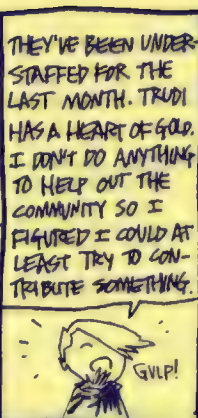 THEY'VE BEEN UNDER-
STAFFED FOR THE
LAST MONTH. TRUDI
HAS A HEART OF GOLD.
I DON'T DO ANYTHING
TO HELP OUT THE
COMMUNITY SO I
FIGURED I COULD AT
LEAST TRY TO CON-
TRIBUTE SOMETHING.
GVLP!